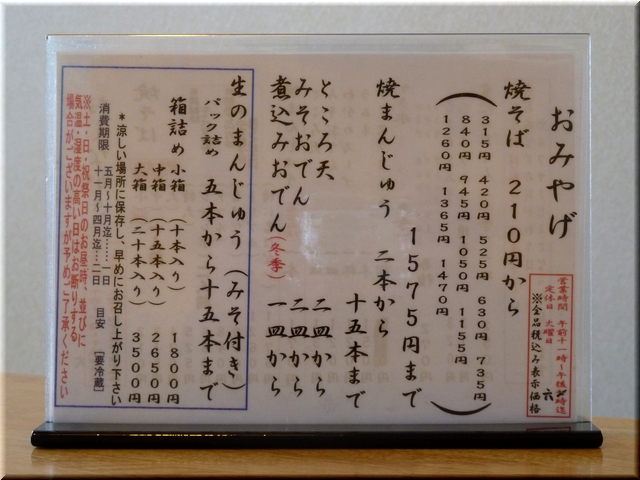 おみやげ
営業時間 午前十一時～午後六時迄
定休日 火曜日
※全品税込み表示価格
焼そば 210円から
315円 420円 525円 630円 735円
840円 945円 1050円 1155円
1260円 1365円 1470円
1575円まで
焼まんじゅう 二本から
十五本まで
ところ天 二皿から
みそおでん 二皿から
煮込みおでん(冬季) 一皿から
生のまんじゅう(みそ付き)
パック詰め 五本から十五本まで
箱詰め 小箱(十本入り) 1800円
中箱(十五本入り) 2650円
大箱(二十本入り) 3500円
*涼しい場所に保存し、早めにお召し上がり下さい
消費期限 五月～十月迄……一日 目安 [要冷蔵]
十一月～四月迄…二日
※土・日・祝祭日のお昼時、並びに
気温・湿度の高い日はお断りする
場合がございますが予めご了承ください